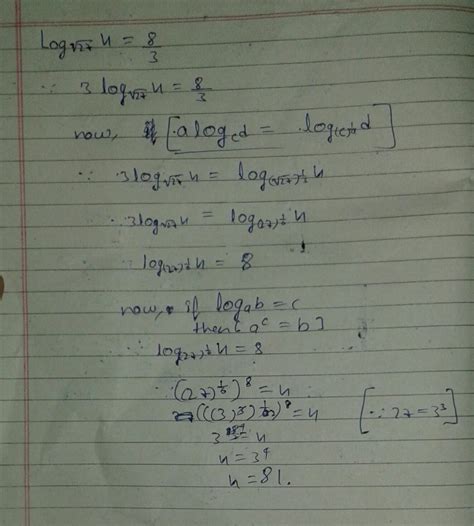 log√27 x = 8/3
∵ 3 log√27 x = 8/3
now, [a log_c d = log_(c)^(1/a) d]
∵ 3 log√27 x = log_(√27)^(1/3) x
∴ 3 log√27 x = log_(27)^(1/6) x
∴ log_(27)^(1/6) x = 8
now, if log_a b = c
then [a^c = b]
∴ log_(27)^(1/6) x = 8
∵ (27)^(1/6))^8 = x
(((3)^3)^(1/6))^8 = x [∵ 27 = 3^3]
= x
x = 3^4
x = 81.